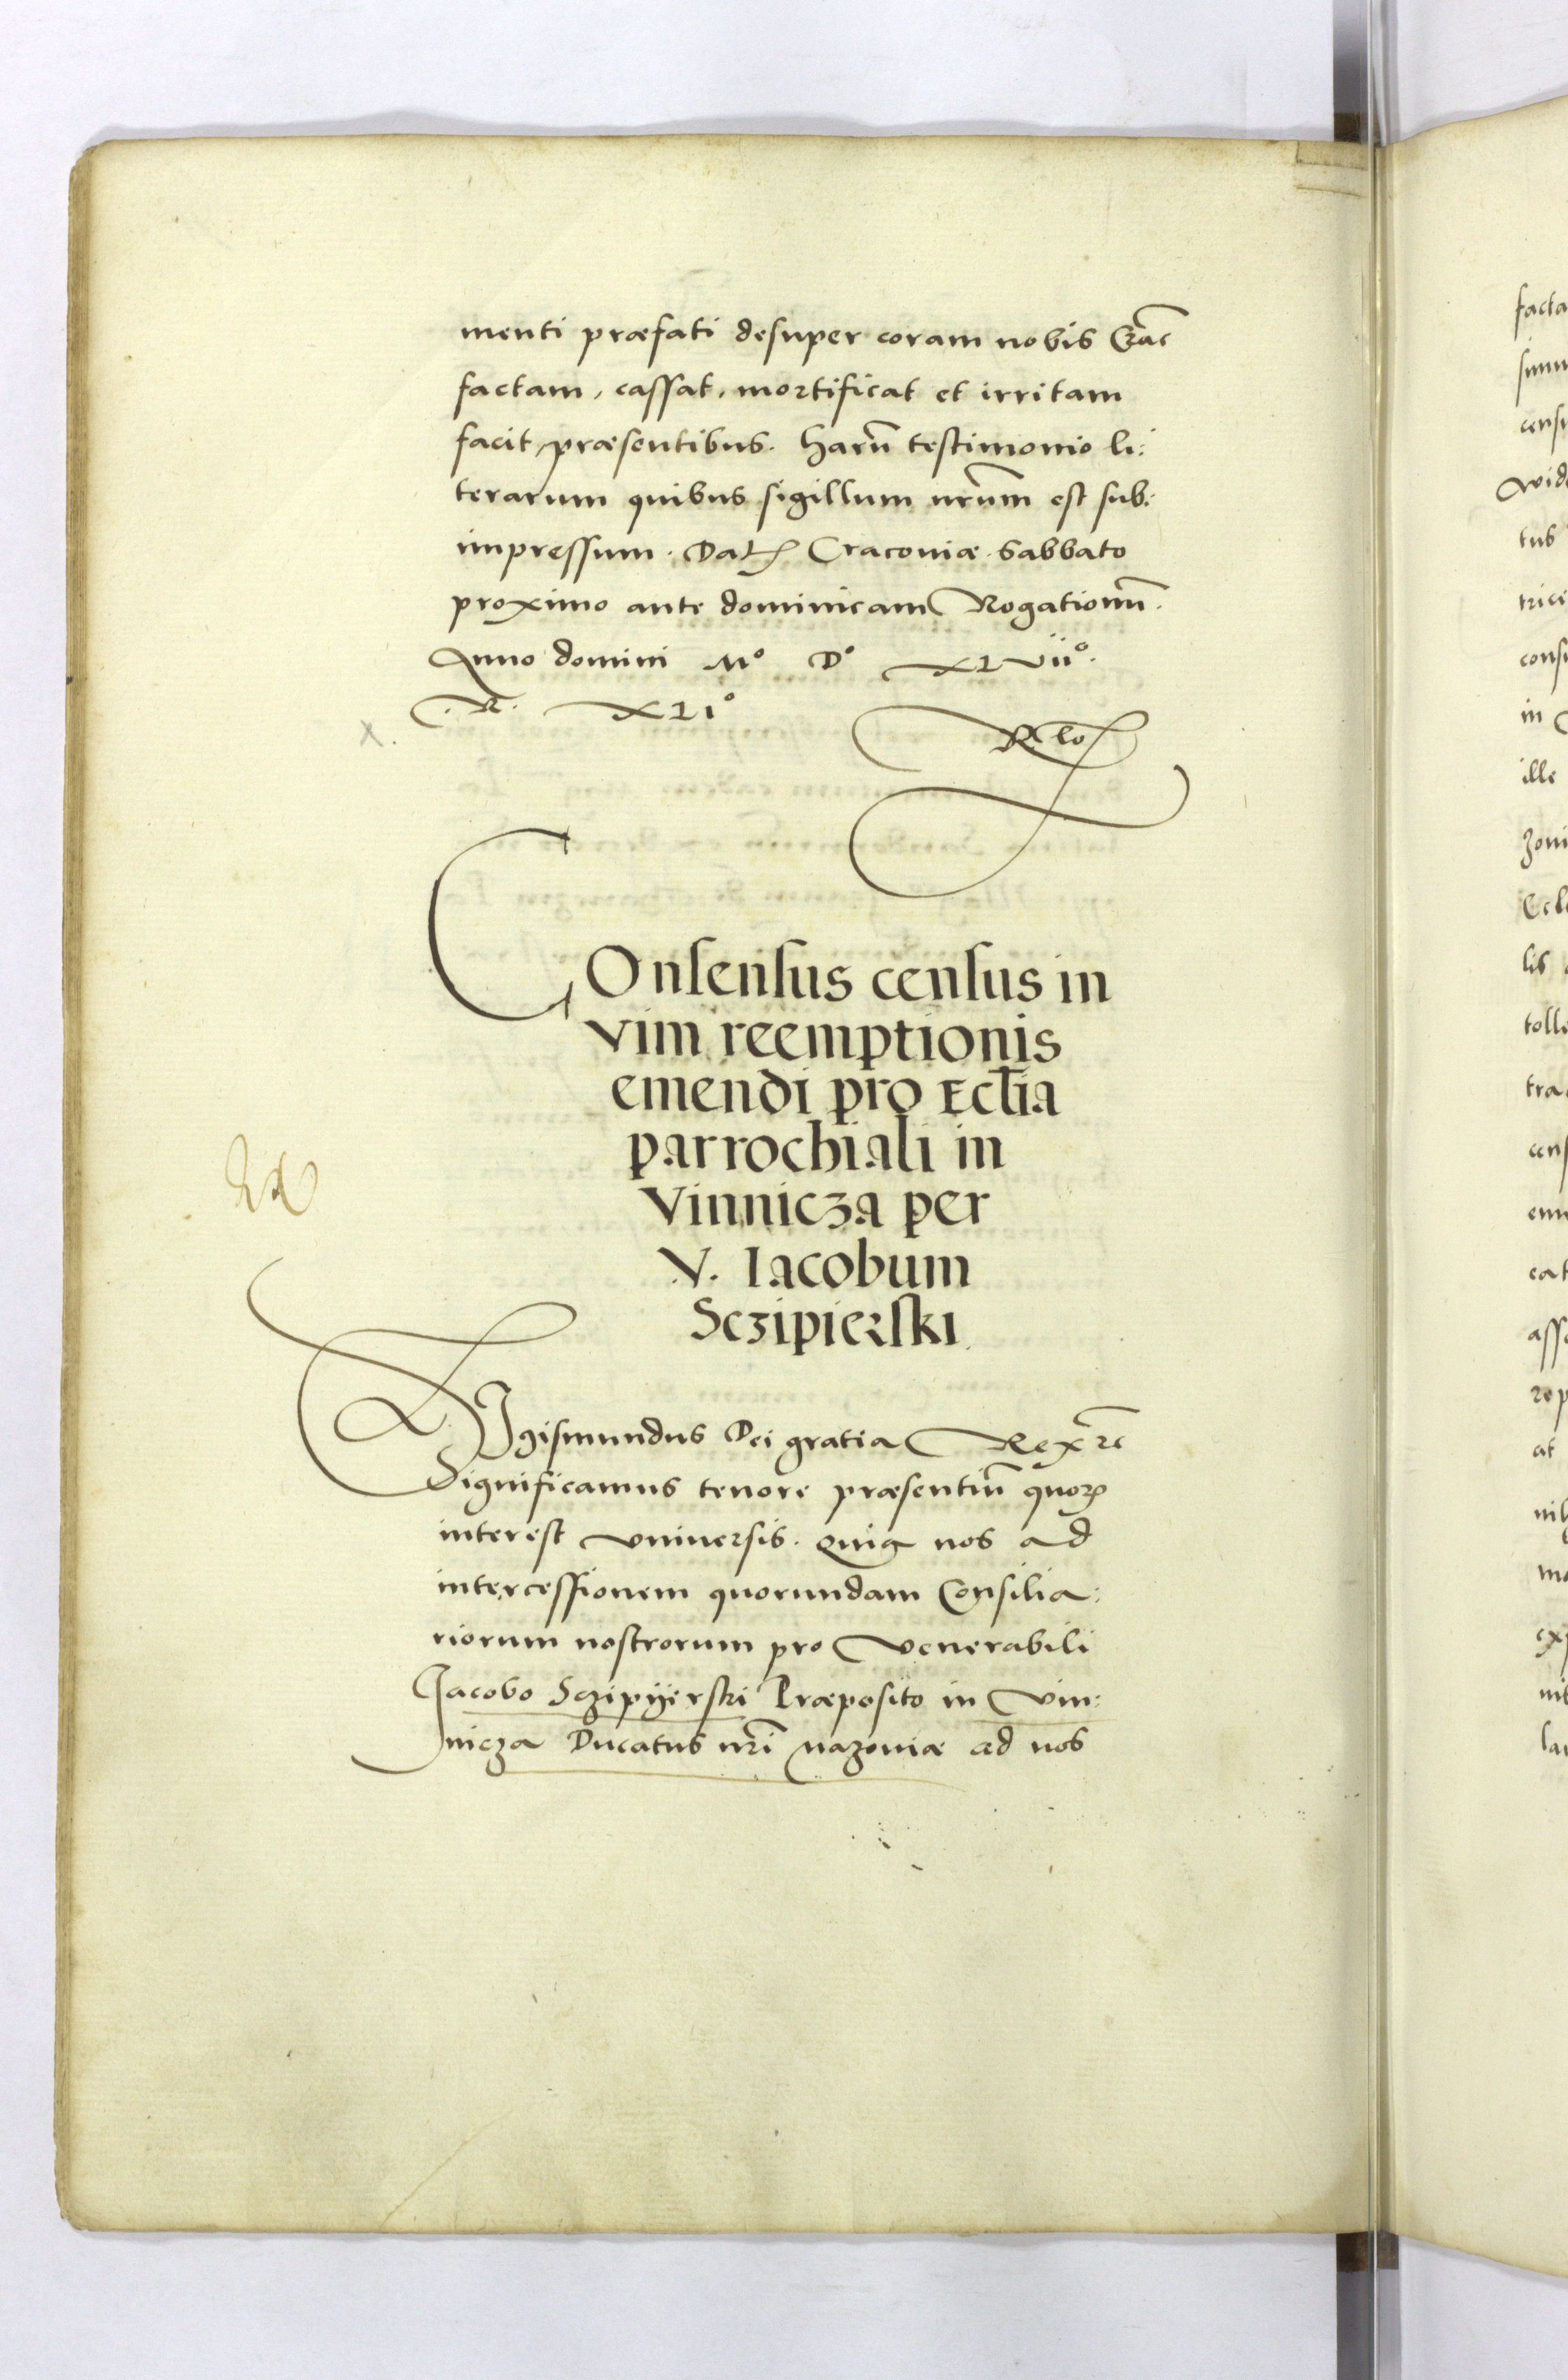 menti præfati desuper coram nobis
factam, cassat, mortificat et irritam
facit præsentibus. Harū testimonio li:
terarum quibus sigillum nrūm est sub:
impressum. Dat Craconiæ Sabbato
proximo ante dominicam Rogationū.
Anno domini Mº Dº XLVIIº.
R. XLIº
X.
COnsensus census in
vim reemptionis
emendi pro Eccl̄ia
parrochiali in
Vinnicza per
V. Iacobum
Sczipierski
SIgismundus Dei gratia Rex rc̄
Significamus tenore præsentiū quorꝫ
interest vniuersis. Quia nos ad
intercessionem quorundam Consilia:
riorum nostrorum pro Venerabili
Jacobo Sczipijerski Præposito in Vin:
nicza Ducatus nrī Mazoniæ ad nos
facta
tus
consu
in
ille
lis
tra
at